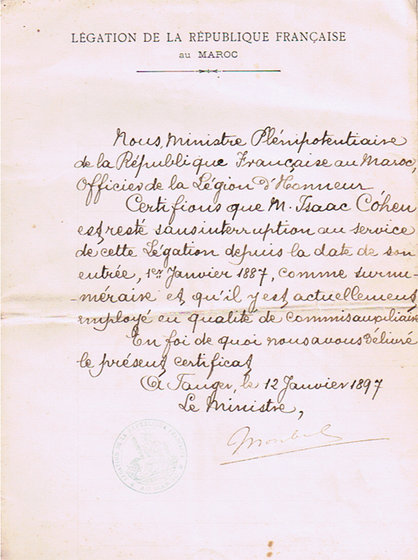 LÉGATION DE LA RÉPUBLIQUE FRANÇAISE
au MAROC
Nous, Ministre Plénipotentiaire
de la République Française au Maroc,
Officier de la Légion d'Honneur
Certifions que M. Isaac Cohen
est resté sans interruption au service
de cette Légation depuis la date de son
entrée, 1er Janvier 1887, comme surnu-
-méraire et qu'il y est actuellement
employé en qualité de commis auxiliaire
En foi de quoi nous avons délivré
le présent certificat
A Tanger, le 12 Janvier 1897
Le Ministre,